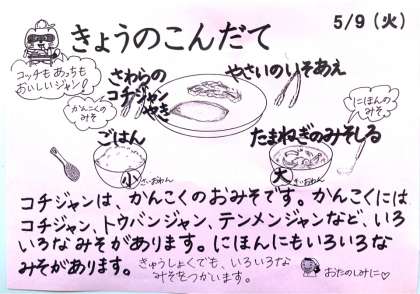 きょうのこんだて
5/9（火）
コッチもあっちも
おいしいジャン!
かんこくの
みそ
さわらの
コチジャン
やき
やさいのいそあえ
にほんの
みそ
ごはん
たまねぎのみそしる
小
大
コチジャンは、かんこくのおみそです。かんこくには
コチジャン、トウバンジャン、テンメンジャンなど、いろ
いろなみそがあります。にほんにもいろいろな
みそがあります。
きゅうしょくでも、いろいろな
みそをつかいます。
おたのしみに♡